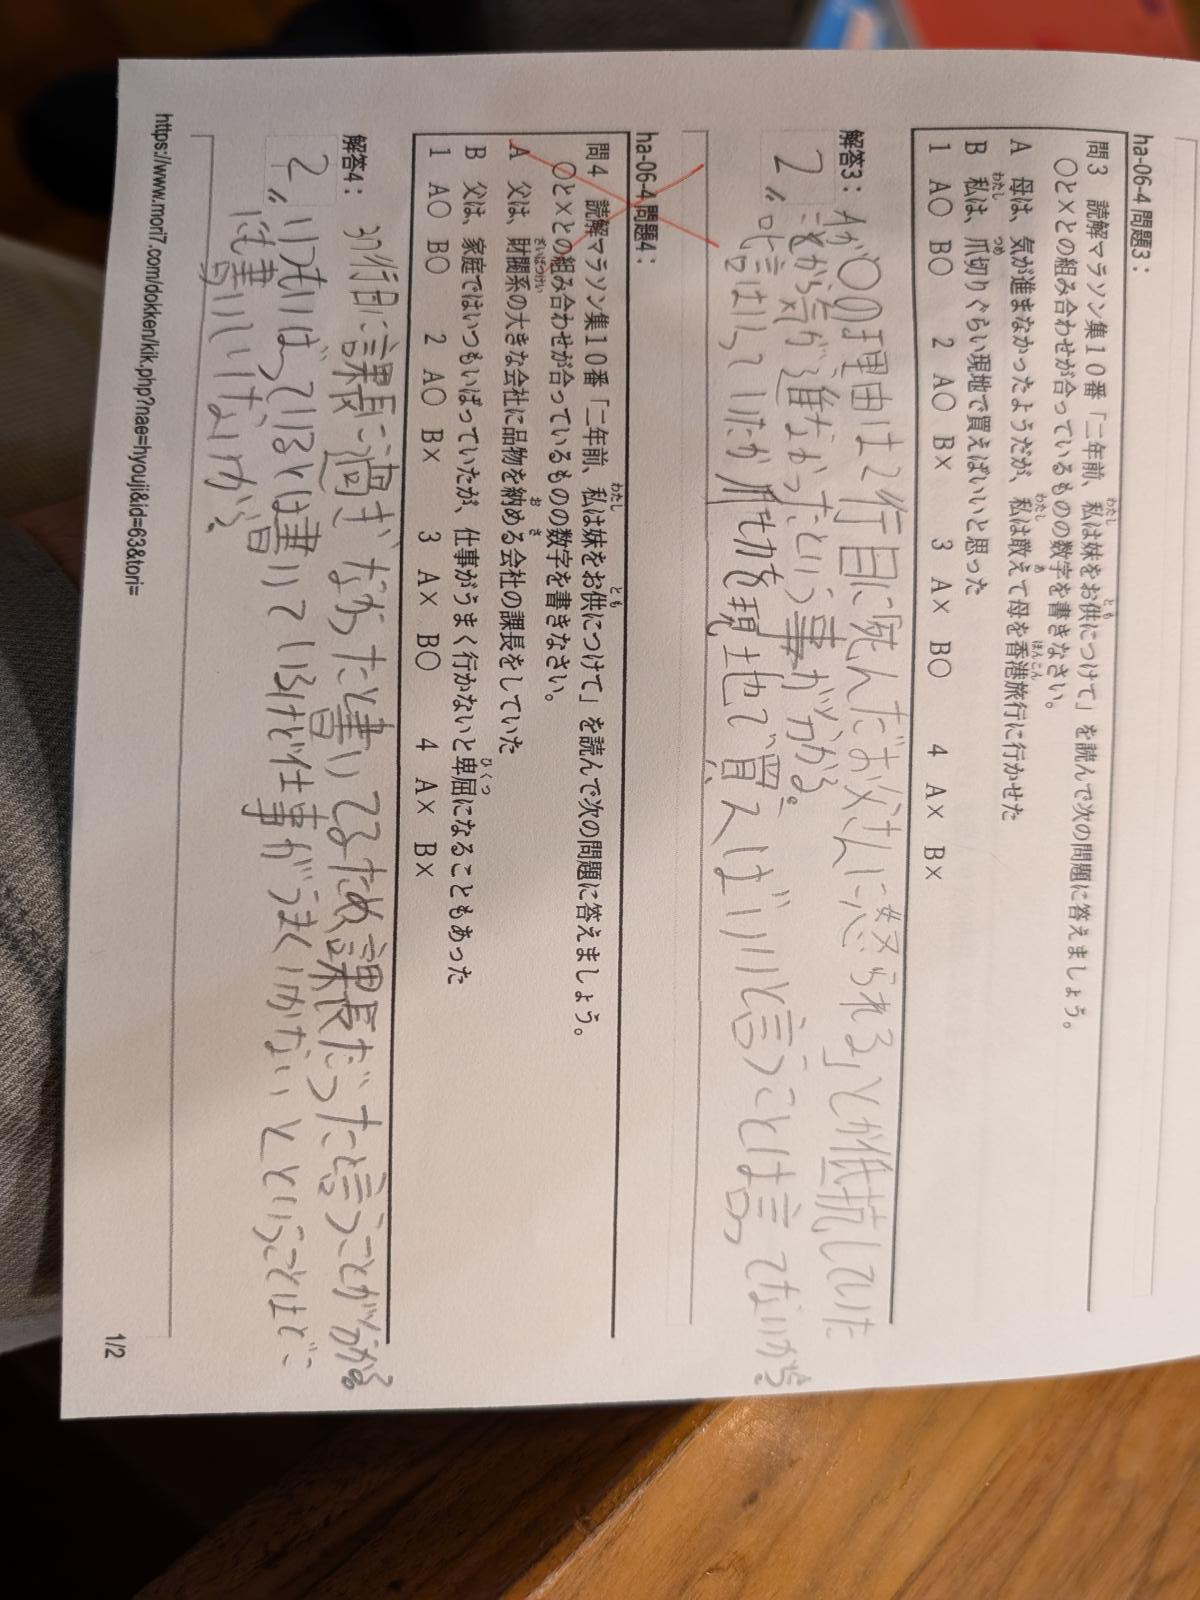 ha-06-4 問題3：
問3　読解マラソン集10番「二年前、私は妹をお供につけて」を読んで次の問題に答えましょう。
○と×との組み合わせが合っているものの数字を書きなさい。
A　母は、気が進まなかったようだが、私は敢えて母を香港旅行に行かせた
B　私は、爪切りぐらい現地で買えばいいと思った
1　A○　B○　　2　A○　B×　　3　A×　B○　　4　A×　B×
解答3：
Aが○の理由は2行目に死んだお父さんに怒られる」とか抵抗していた
2〃 から気が進なかったという事が分かる。
叱言はいっていたが 爪切を現土也で買えばいいと言うことは言ってないから。
ha-06-4 問題4：
問4　読解マラソン集10番「二年前、私は妹をお供につけて」を読んで次の問題に答えましょう。
○と×との組み合わせが合っているものの数字を書きなさい。
A　父は、財閥系の大きな会社に品物を納める会社の課長をしていた
B　父は、家庭ではいつもいばっていたが、仕事がうまく行かないと卑屈になることもあった
1　A○　B○　　2　A○　B×　　3　A×　B○　　4　A×　B×
解答4：
37行目に課長に過ぎなかったと書いてるため課長だったと言うことが分かる
2〃 いつもいばっているとは書いているけど仕事がうまくいかないとということはどこ
にも書いていないから。
https://www.mori7.com/dokken/kik.php?nae=hyouji&id=63&tori=
1/2